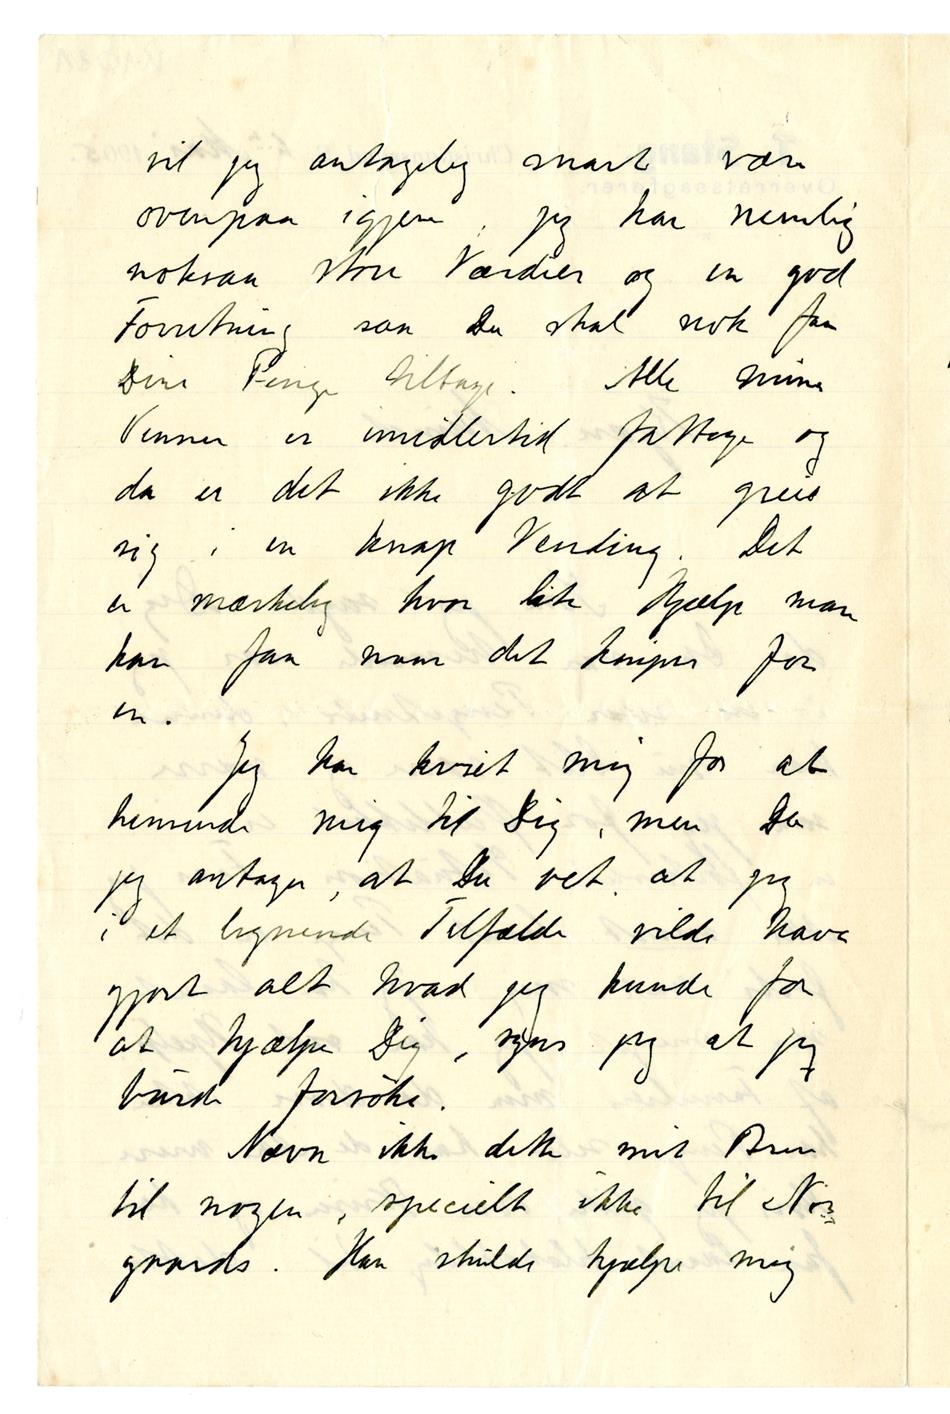 vil jeg antagelig snart være
ovenpaa igjen, jeg har nemlig
noksaa store Værdier og en god
Forretning saa Du skal nok faa
Dine Penge tilbage. Alle mine
Venner er imidlertid fattige og
da er det ikke godt at greie
sig i en knap Vending. Det
er mærkelig hvor lite Hjælp man
kan faa naar det kniper for
en.
Jeg har kviet mig for at
henvende mig til Dig, men Da
jeg antager, at Du vet, at jeg
i et lignende Tilfælde vilde have
gjort alt hvad jeg kunde for
at hjælpe Dig, synes jeg at jeg
burde forsöke.
Nævn ikke dette mit Brev
til nogen, specielt ikke til Nor
gaards. Han skulde hjælpe mig